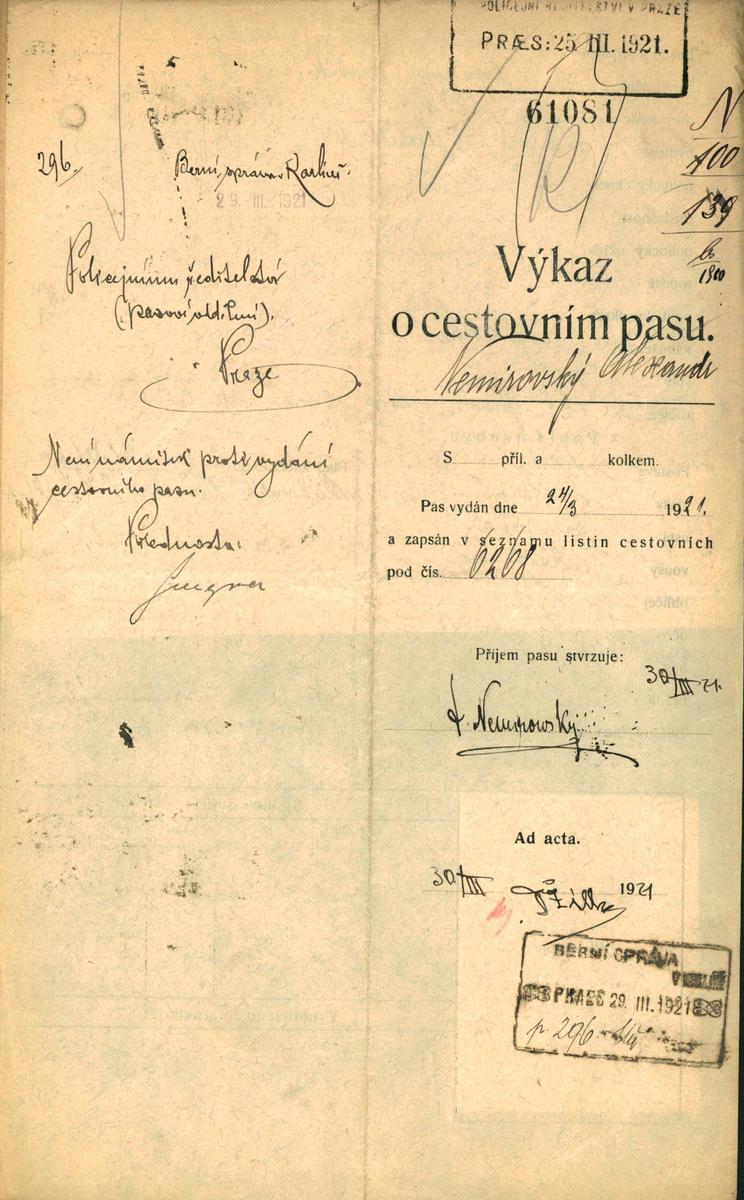 296.
Berní správa v Karlíně.
29. III. 1921
Policejnímu ředitelství
(pasové oddělení).
Praze
Není námitek proti vydání
cestovního pasu.
Přednosta:
POLICEJNÍ ŘEDITELSTVÍ V PRAZE
PRÆS: 25 III. 1921.
61081
N
100
139
1900
Výkaz
o cestovním pasu.
Nemirovský Alexandr
S příl. a kolkem.
Pas vydán dne 24/3 1921.
a zapsán v seznamu listin cestovních
pod čís. 6268
Příjem pasu stvrzuje:
30/III 21.
Nemirowský
Ad acta.
30/III 1921
BERNÍ SPRÁVA
V KARLÍNĚ
PRAES 29. III. 1921
p. 296